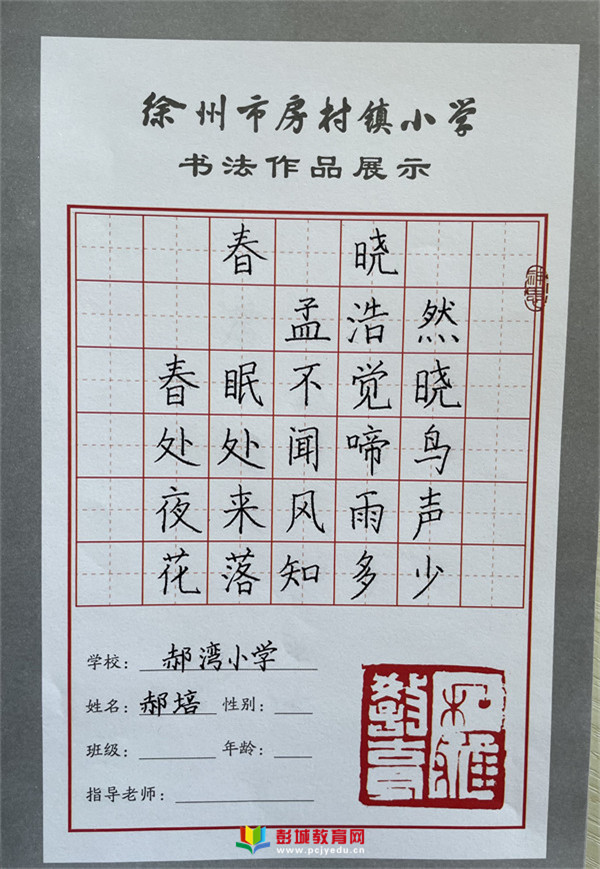 徐州市房村镇小学
书法作品展示
春晓
孟浩然
春眠不觉晓
处处闻啼鸟
夜来风雨声
花落知多少
学校：郝湾小学
姓名：郝培 性别：
班级： 年龄：
指导老师：
彭城教育网
www.pcjyedu.cn